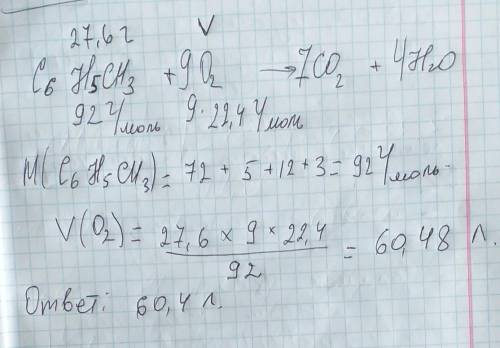 27,6 г V
C6 H5CH3 + 9O2 → 7CO2 + 4H2O
92 г/моль 9·22,4 г/моль
M(C6H5CH3) = 72 + 5 + 12 + 3 = 92 г/моль.
V(O2) = 27,6 × 9 × 22,4 / 92 = 60,48 л.
Ответ: 60,4 л.